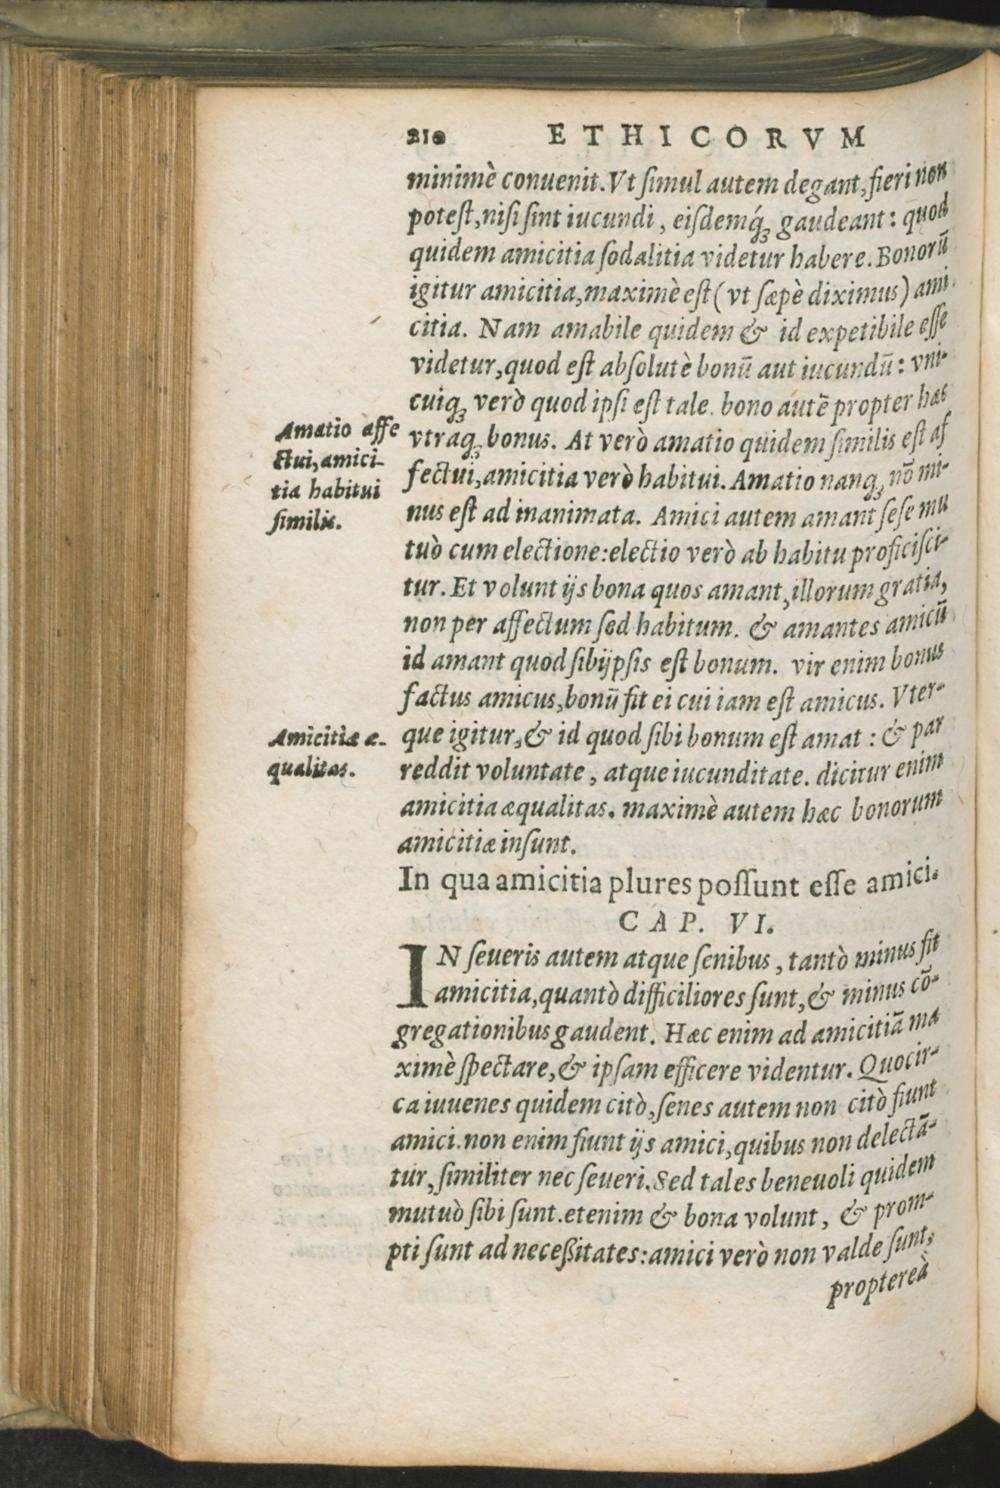 210 ETHICORVM
minimè conuenit. Vt ſimul autem degant, fieri non
poteſt, niſi ſint iucundi, eiſdemq́ꝫ gaudeant: quod
quidem amicitia ſodalitia videtur habere. Bonorū
igitur amicitia, maximè eſt (vt ſæpè diximus) ami-
citia. Nam amabile quidem & id expetibile eſſe
videtur, quod eſt abſolutè bonū aut iucundū: vni-
cuiqꝫ verò quod ipſi eſt tale. bono autē propter hæc
vtraqꝫ bonus. At verò amatio quidem ſimilis eſt af
fectui, amicitia verò habitui. Amatio nanqꝫ nō mi-
nus eſt ad inanimata. Amici autem amant ſeſe mu
tuò cum electione: electio verò ab habitu proficiſci-
tur. Et volunt ijs bona quos amant, illorum gratia,
non per affectum ſed habitum. & amantes amicū
id amant quod ſibijpſis eſt bonum. vir enim bonus
factus amicus, bonū fit ei cui iam eſt amicus. Vter-
que igitur, & id quod ſibi bonum eſt amat: & par
reddit voluntate, atque iucunditate. dicitur enim
amicitia æqualitas. maximè autem hæc bonorum
amicitiæ inſunt.
Amatio affe
ctui, amici-
tia habitui
ſimilis.
Amicitiæ æ-
qualitas.
In qua amicitia plures poſſunt eſſe amici.
CAP. VI.
IN ſeueris autem atque ſenibus, tantò minus fit
amicitia, quantò difficiliores ſunt, & minus cō-
gregationibus gaudent. Hæc enim ad amicitiā ma
ximè ſpectare, & ipſam efficere videntur. Quocir-
ca iuuenes quidem citò, ſenes autem non citò fiunt
amici. non enim fiunt ijs amici, quibus non delectā-
tur, ſimiliter nec ſeueri. Sed tales beneuoli quidem
mutuò ſibi ſunt. etenim & bona volunt, & prom-
pti ſunt ad neceßitates: amici verò non valde ſunt,
proptereà